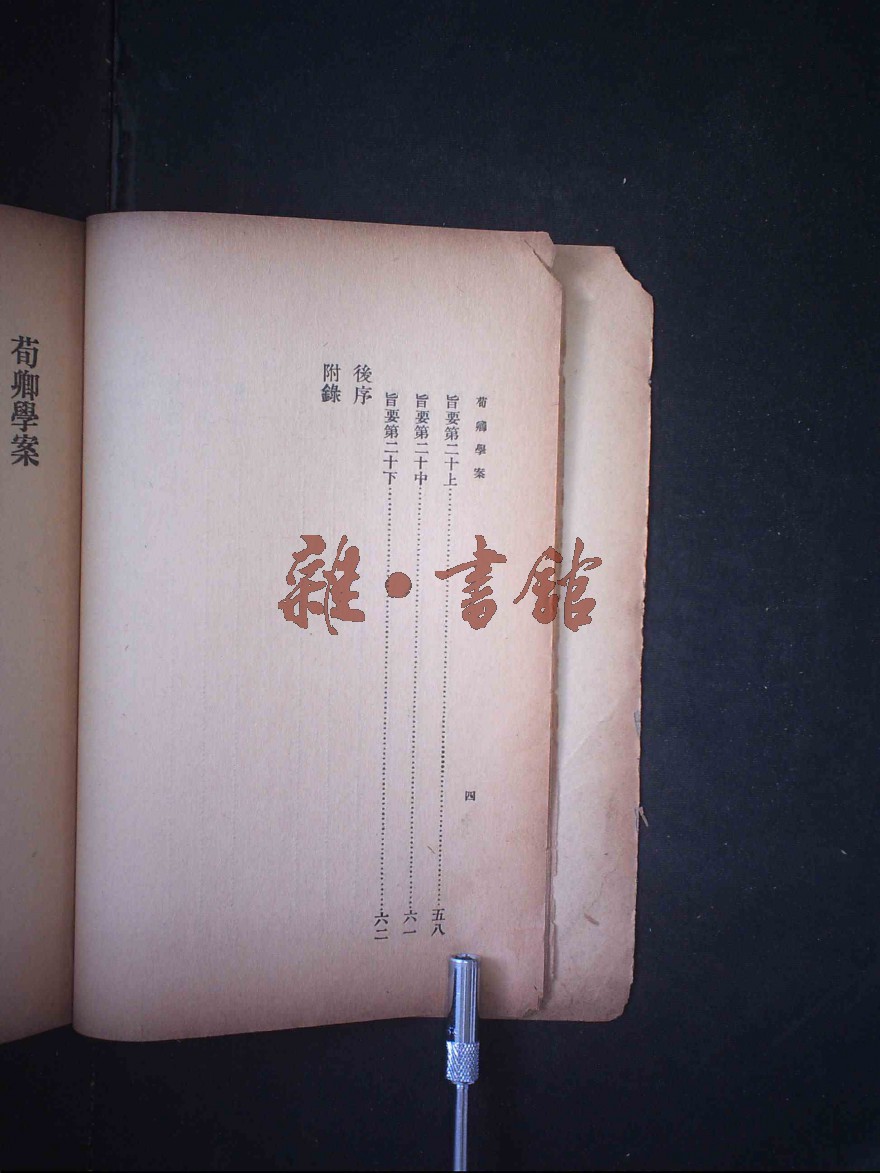 荀卿學案
四
旨要第二十上……五八
旨要第二十中……六一
旨要第二十下……六二
後序
附錄
荀卿學案
雜·書館